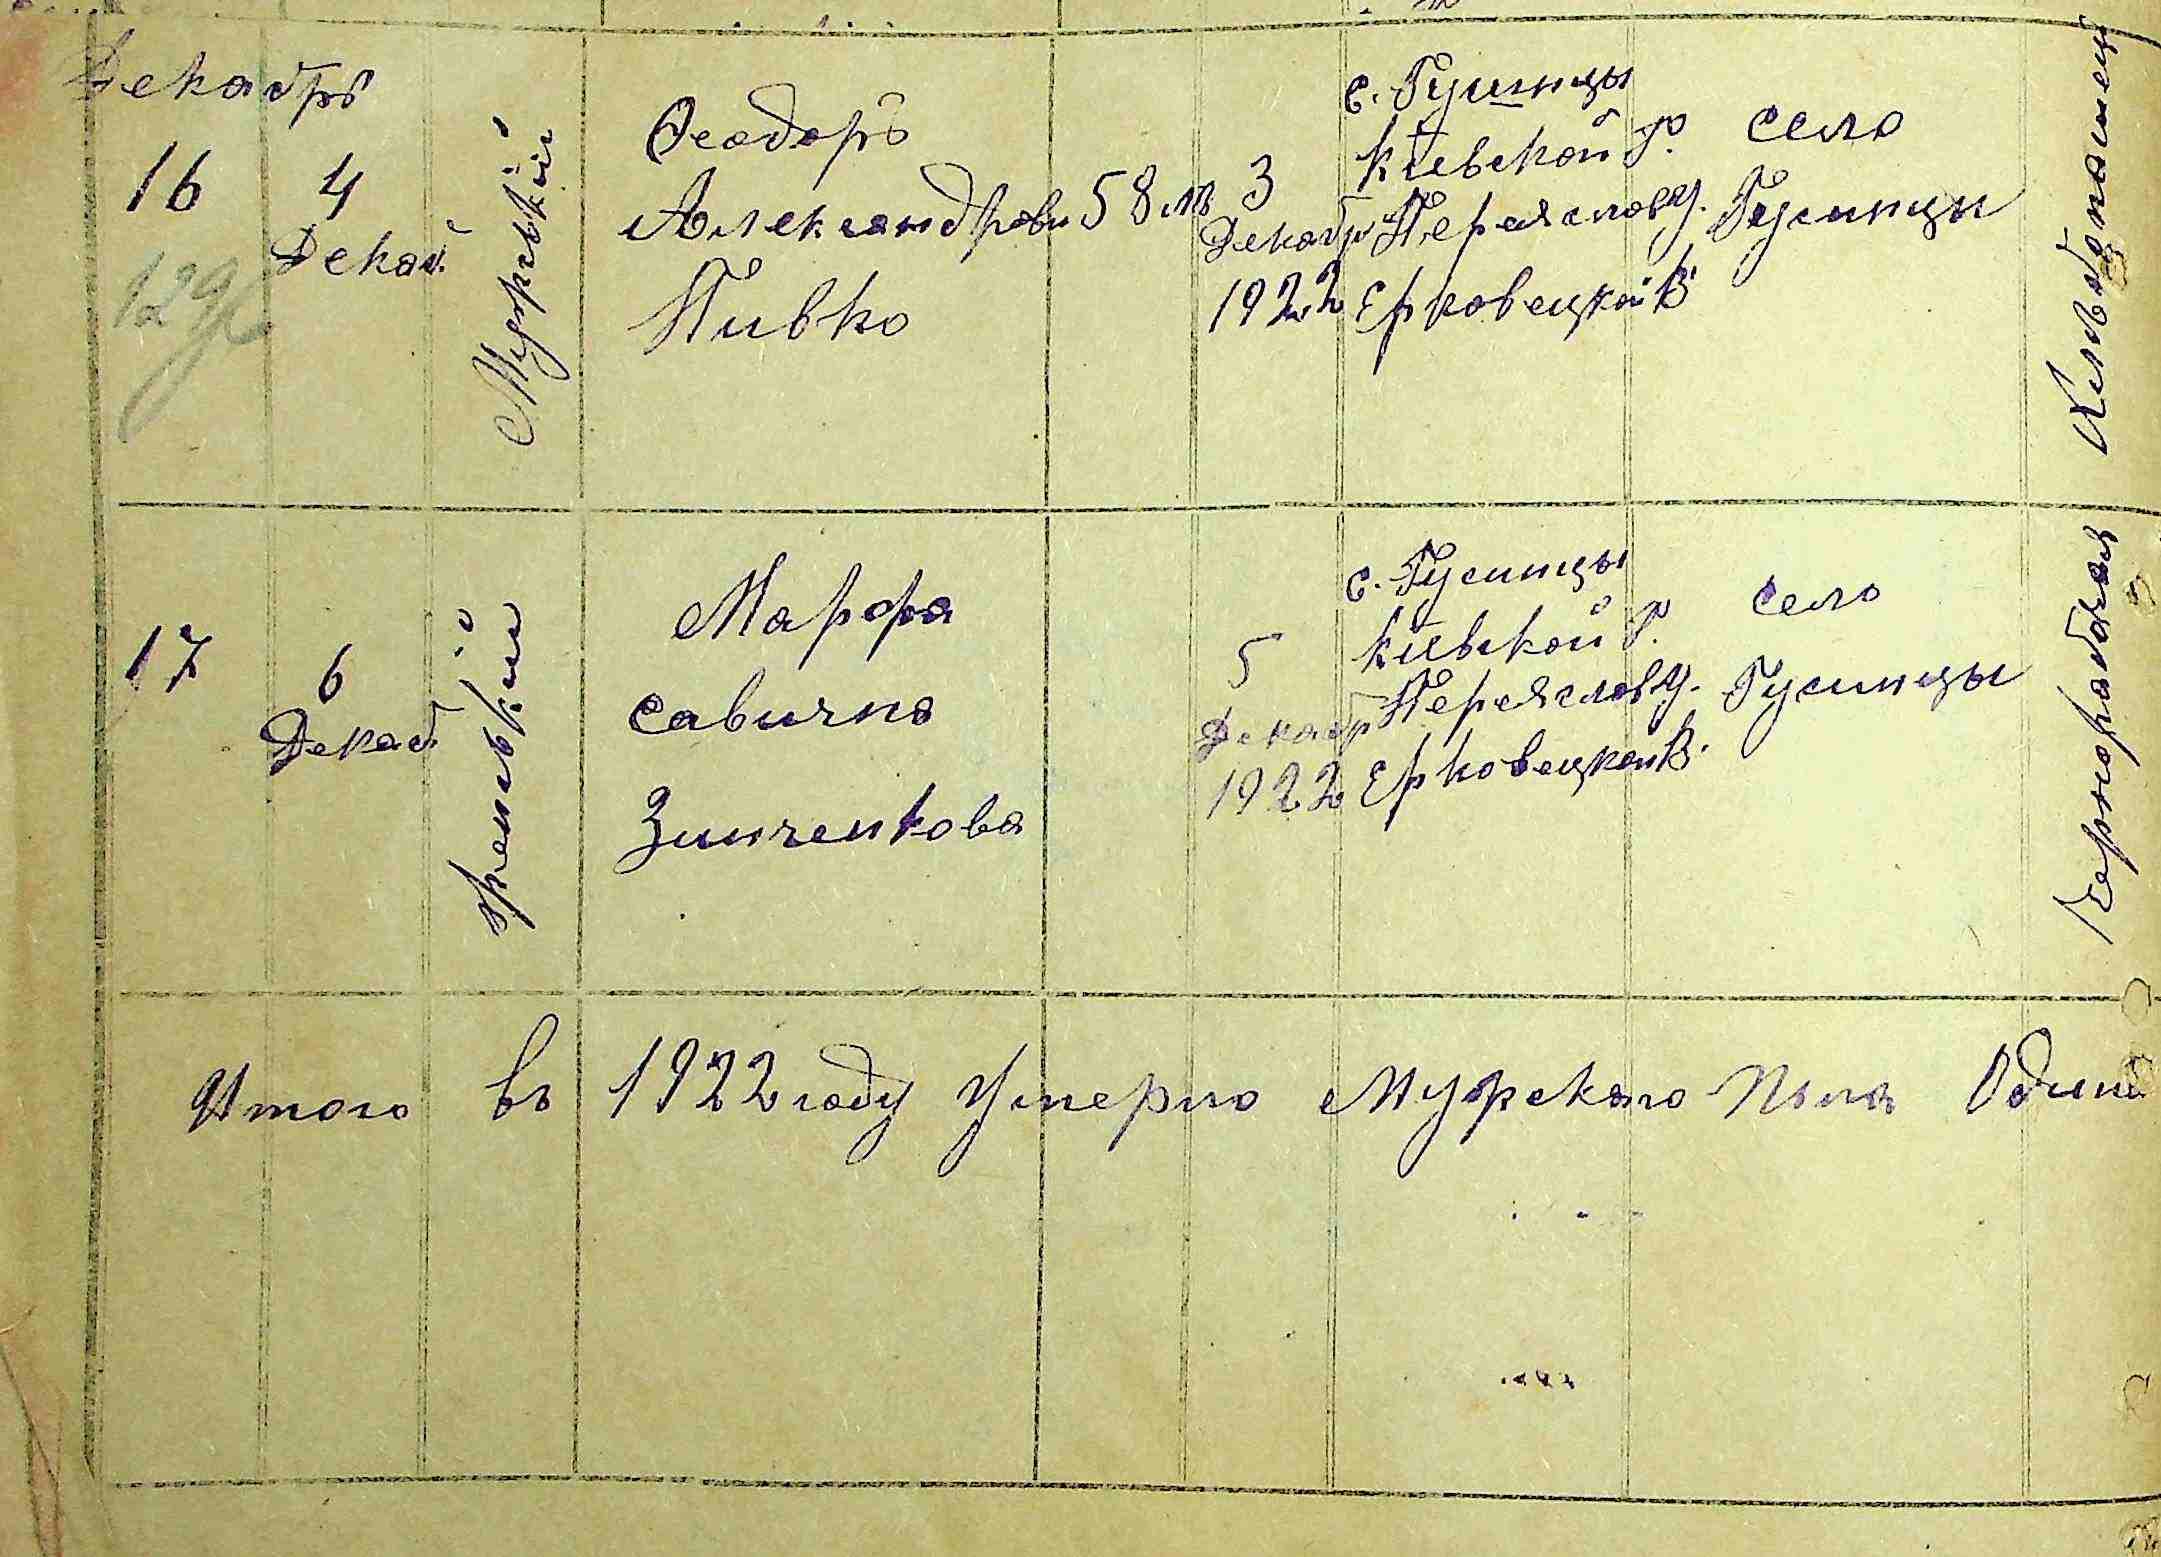 Декабрь
16
4
Декаб.
Мужскій
Ѳеодоръ
Александрови
Пивко
58 лѣ
3
Декабр
1922
с. Гусинцы
Кіевской Г.
Переяслов У.
Ерковецкой В.
село
Гусинцы
Хлѣбопашец
17
6
Декаб
женскій
Марфа
Савична
Зинченкова
5
Декабр
1922
с. Гусинцы
Кіевской Г.
Переяслов У.
Ерковецкой В.
село
Гусинцы
Чернорабочая
Итого въ 1922 году Умерло Мужскаго Пола